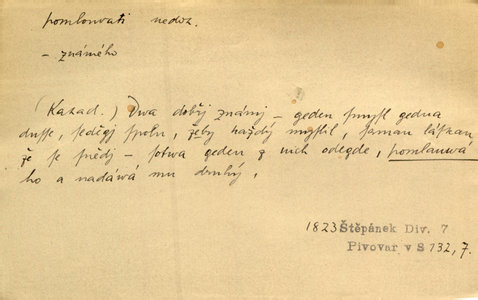 pomlouvati nedok.
– známého
(Kazad.) Dwa dobřj známj – geden smysl gedna
dusse, seděgj spolu, žeby každý myslil, samau láskau
že se snědj – sotwa geden z nich odegde, pomlauwá
ho a nadáwá mu druhý.
1823 Štěpánek Div. 7
Pivovar v S 132, 7.